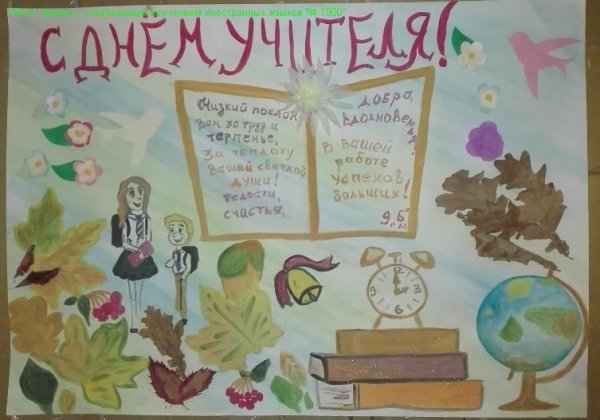 с углубленным изучением иностранных языков № 1900"
С ДНЁМ УЧИТЕЛЯ!
Низкий поклон
Вам за труд и
терпенье,
За теплоту
Вашей светлой
души!
Радости,
счастья,
добра,
вдохновенья,
В Вашей
работе
Успехов
больших!
9 "Б" кл
12
3
6
9